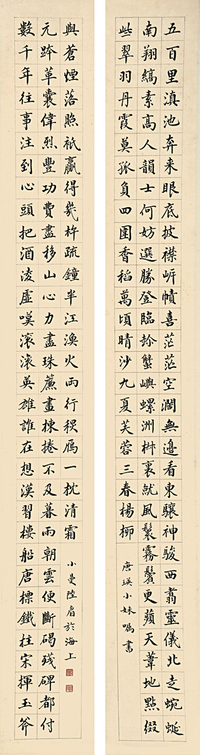 五百里滇池奔來眼底披襟岸幘喜茫茫空濶無邊看東驤神駿西翥靈儀北走蜿蜒
南翔縞素高人韻士何妨選勝登臨趁蟹嶼螺洲梳裹就風鬟霧鬢更蘋天葦地點綴
些翠羽丹霞莫孤負四圍香稻萬頃晴沙九夏芙蓉三春楊柳
唐瑛小妹囑書
數千年往事注到心頭把酒淩虛嘆滾滾英雄誰在想漢習樓船唐標鐵柱宋揮玉斧
元跨革囊偉烈豐功費盡移山心力盡珠簾畫棟捲不及暮雨朝雲便斷碣殘碑都付
與蒼煙落照祇贏得幾杵疏鐘半江漁火兩行穐雁一枕清霜
小曼陸眉於海上